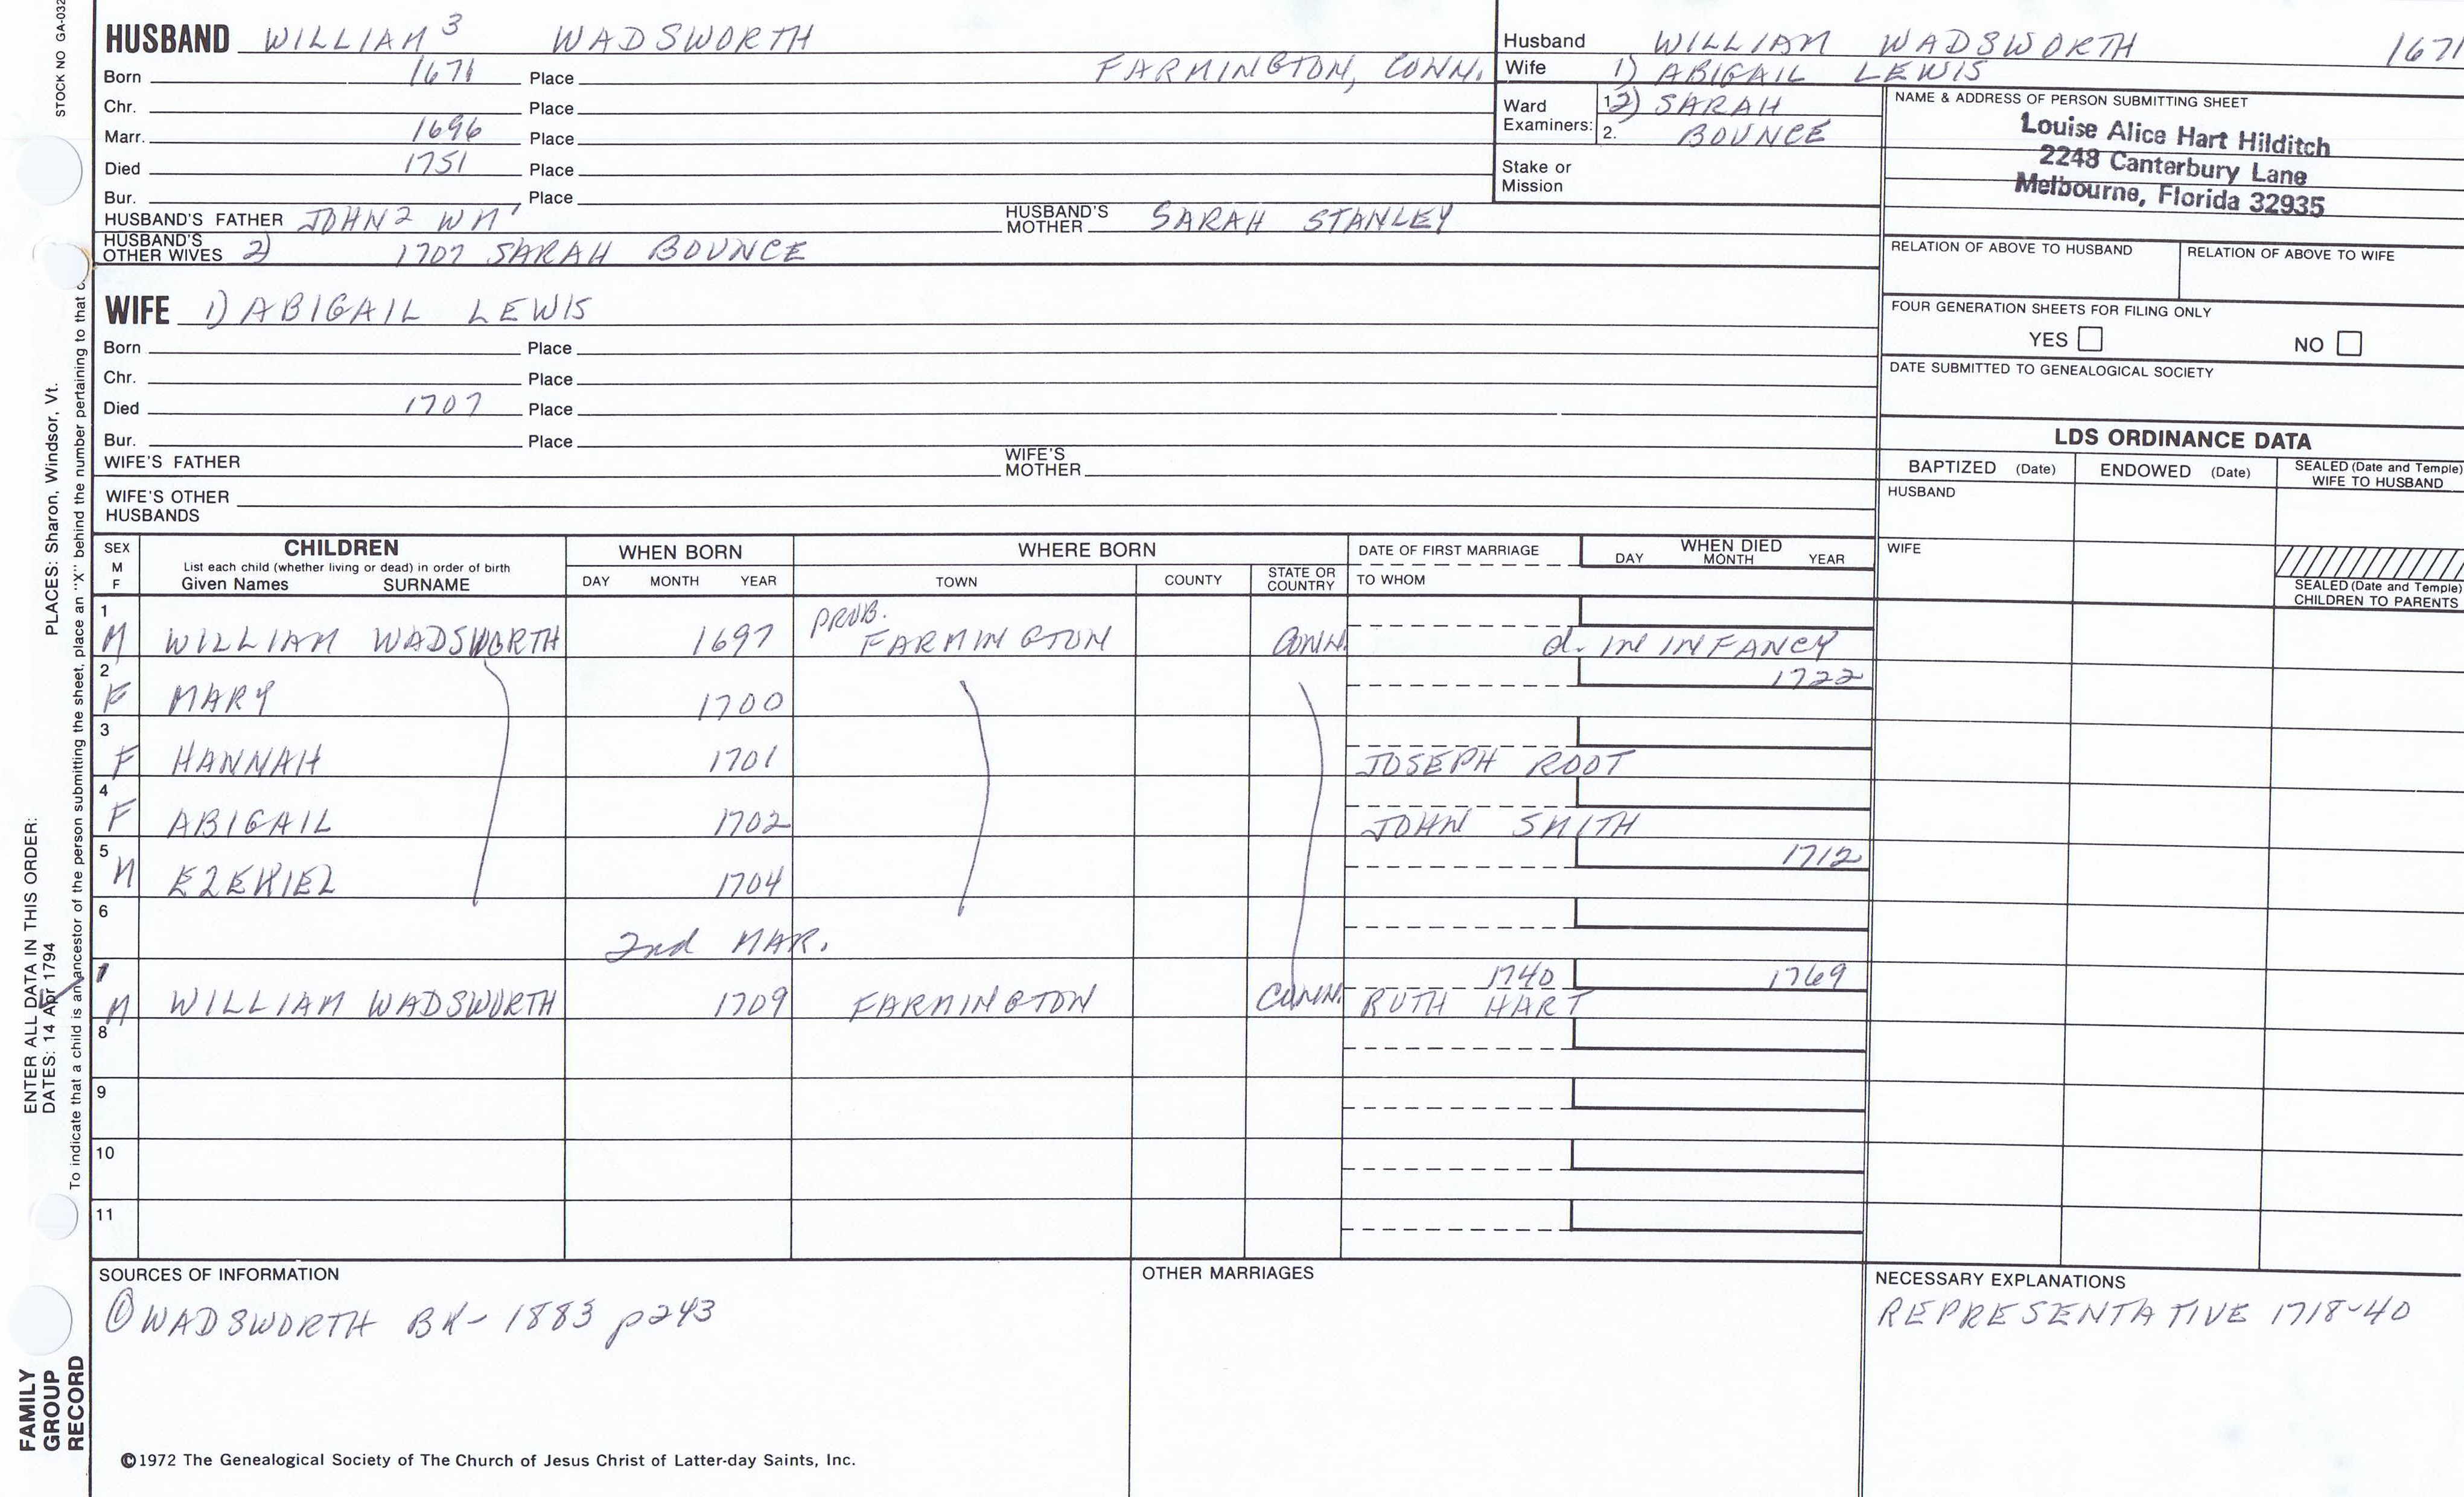 STOCK NO GA-032
HUSBAND WILLIAM 3 WADSWORTH
Born 1671 Place FARMINGTON, CONN.
Chr. Place
Marr. 1696 Place
Died 1751 Place
Bur. Place
HUSBAND'S FATHER JOHN2 WM1 HUSBAND'S MOTHER SARAH STANLEY
HUSBAND'S OTHER WIVES 2) 1707 SARAH BOUNCE
WIFE 1) ABIGAIL LEWIS
Born Place
Chr. Place
Died 1707 Place
Bur. Place
WIFE'S FATHER WIFE'S MOTHER
WIFE'S OTHER HUSBANDS
Husband WILLIAM WADSWORTH 1671
Wife 1) ABIGAIL LEWIS
Ward Examiners: 1. 2) SARAH
2. BOUNCE
Stake or Mission
NAME & ADDRESS OF PERSON SUBMITTING SHEET
Louise Alice Hart Hilditch
2248 Canterbury Lane
Melbourne, Florida 32935
RELATION OF ABOVE TO HUSBAND RELATION OF ABOVE TO WIFE
FOUR GENERATION SHEETS FOR FILING ONLY
YES NO
DATE SUBMITTED TO GENEALOGICAL SOCIETY
LDS ORDINANCE DATA
BAPTIZED (Date) ENDOWED (Date) SEALED (Date and Temple) WIFE TO HUSBAND
HUSBAND
WIFE
SEALED (Date and Temple) CHILDREN TO PARENTS
SEX M F CHILDREN WHEN BORN WHERE BORN DATE OF FIRST MARRIAGE WHEN DIED
List each child (whether living or dead) in order of birth
Given Names SURNAME DAY MONTH YEAR TOWN COUNTY STATE OR COUNTRY TO WHOM DAY MONTH YEAR
1 PROB.
M WILLIAM WADSWORTH 1697 FARMINGTON CONN. d. IN INFANCY
2 1722
F MARY 1700
3
F HANNAH 1701 JOSEPH ROOT
4
F ABIGAIL 1702 JOHN SMITH
5 1712
M EZEKIEL 1704
6
2nd MAR.
7 1740 1769
M WILLIAM WADSWORTH 1709 FARMINGTON CONN. RUTH HART
8
9
10
11
SOURCES OF INFORMATION
① WADSWORTH BK- 1883 p243
OTHER MARRIAGES
NECESSARY EXPLANATIONS
REPRESENTATIVE 1718-40
©1972 The Genealogical Society of The Church of Jesus Christ of Latter-day Saints, Inc.
FAMILY GROUP RECORD
ENTER ALL DATA IN THIS ORDER:
DATES: 14 Apr 1794 PLACES: Sharon, Windsor, Vt.
To indicate that a child is an ancestor of the person submitting the sheet, place an "X" behind the number pertaining to that